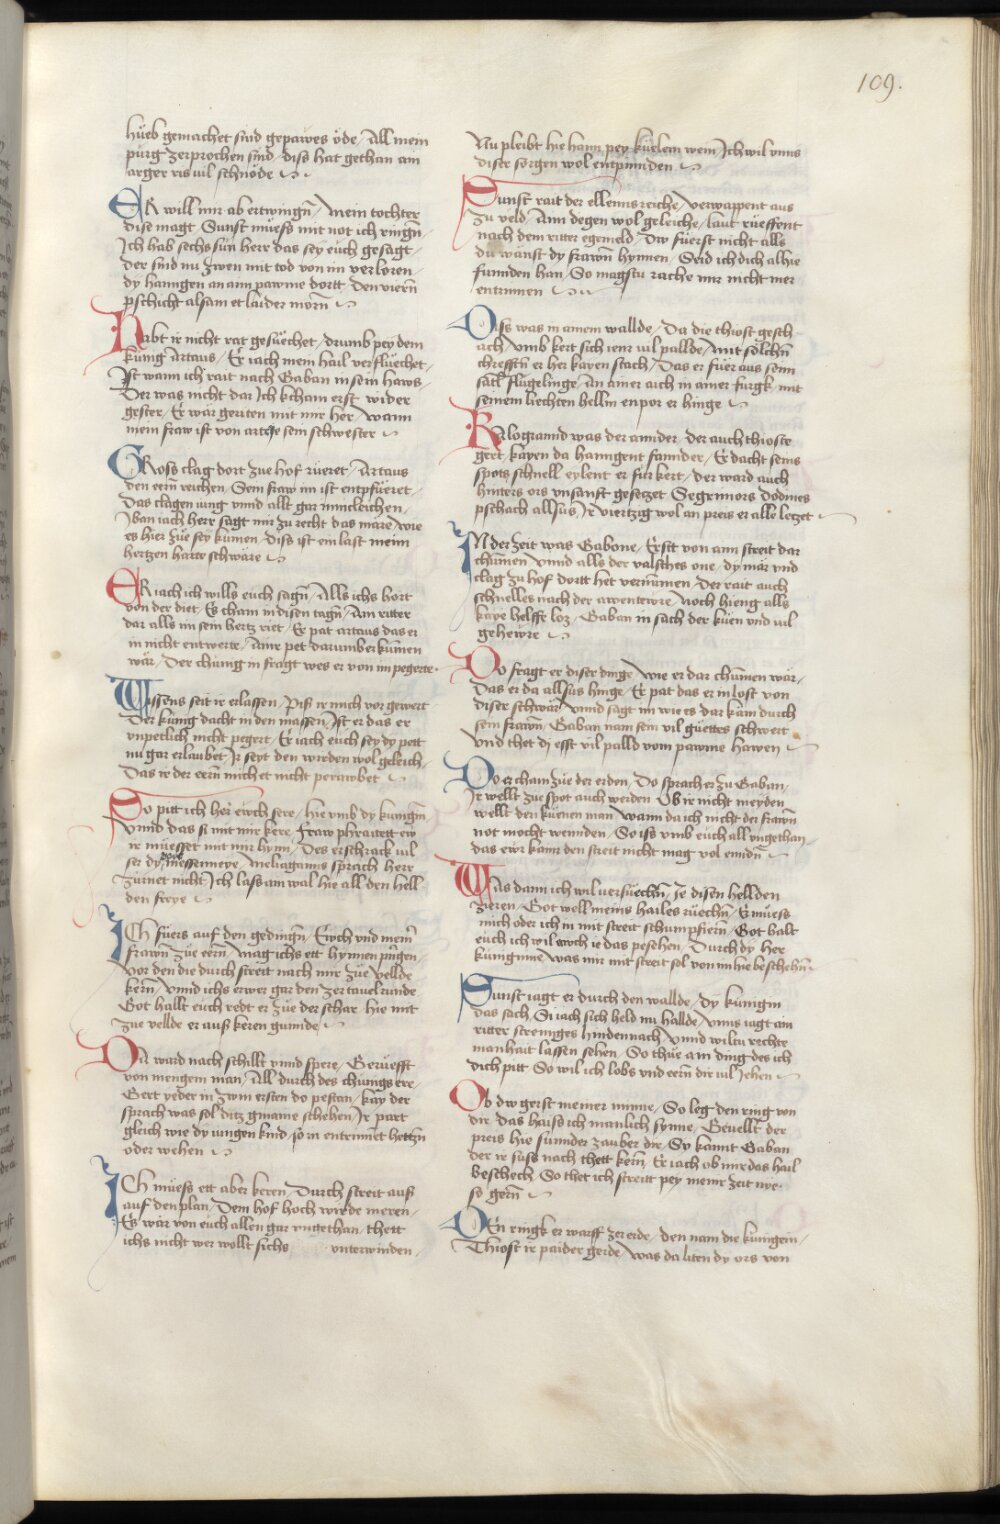 109.
hüeb gemachet sind gepawes öde / All mein
pürg zerprochen sind / diss hat gethan ain
arger ris vil schnöde
ER will mir ab ertwingn̄ / Mein tochter
dise magt / Sunst müess mit not ich ringn̄ /
Ich hab sechs sün herr das sey euch gesagt /
der sind nu zwen mit tod von im verloren /
dy hanngen an ain pawme dortt / Den viern̄
pschicht alsam et laider morn̄
Habt ir nicht rat gesüechet / drumb pey dem
kunig Artaus / Er iach mein hail verflüechet /
Ist wann ich rait nach Gaban in sein haws /
Der was nicht dar Ich kcham erst wider
gester / Er wär geriten mit mir her / wann
mein fraw ist von arte sein schwester
GRoss clag dort zue hof rüeret / Artaus
den eern̄ reichen / Sein fraw im ist entpfüeret /
Das clagen iung vnnd allt gar inncleichen /
Iban iach herr sagt mir zu recht das märe / wie
es hier züe sey kumen / Diss ist ein last meim
hertzen harte schwäre
ER iach ich wills euch sagn̄ / Alls ichs hort
von der diet / Es cham in disen tagn̄ / Ain ritter
dar alls im sein hertz riet / Er pat artaus das er
in nicht entwerte / Ainr pet darumb er kumen
wär / Der chunig in fragt wes er von im pegerte
Wissens seit ir erlassen / Piss ir mich vor gewert
Der kunig dacht in den massen / Ist er das er
vnpetlich nicht pegert / Er iach euch sey dy pett
nu gar erlaubet / Ir seyt den wirden wol geleich /
Das ir der eern mich et nicht peraubet
So pitt ich her ewch sere / hie vmb dy kunigin
Vnnd das si mit mir kere / fraw
ir müesset mit mir hynn / Des erschrack vil
ser dy messenneye / Meliaganus sprach herr
zürnet nicht / Ich lass am wal hie all den hell
den freye
ICh füers auf den gedingn̄ / Ewch vnd mein̄
frawn̄ züe eern̄ / mag ichs ett hynnen pringen
vor den die durch streit nach mir züe vellde
kern̄ / vnnd ichs erwer gar den zer tauelrunde
Got hallt euch redt er züe der schar hie mit
züe vellde er auss keren gunde
Do ward nach schillt vnnd spere / Gerüefft
von mengem man / All durch des chunigs ere /
Gert yeder in zwin ersten do pestan / kay der
sprach was sol ditz gmaine schehen / Ir part
gleich wie dy iungen kind / so in entrinnet hettzn̄
oder wehen
ICh müess ett aber keren / Durch streit auff
auf den plan / Dem hof hoch wirde meren /
Es wär von euch allen gar vngethan / thett
ichs nicht wer wollt sichs vnterwinden /
Nu pleibt hie haim pey küelem wein / Ich wil vnns
diser sorgen wol entpinnden
Sunst rait der ellenns reiche / verwappent aus
zu veld / Ain degen wol geleiche / laut rüeffent
nach dem ritter egemeld / Dw füerst nicht alls
du wänst dy frawn̄ hynnen / Seid ich dich alhie
funnden han / So magstu rache mir nicht mer
entrinnen
Diss was in ainem wallde / Da die thiost gesch
ach / Vmb kert sich iener vil pallde / mit solchn̄
chrefften er her kayen stach / Das er füer aus seim
satl flügelinge / An ainer aich in ainer furgk / mit
seinem liechten hellm enpor er hinge
Kalogrannd was der annder / der auch thioste
gert / kayen da hanngent fannder / Er dacht seins
spots schnell eylent er für kert / der ward auch
hinters ors vnsanft gesetzet Segremors dodines
pschach allsüs / Ir viertzig wol an preis er alle letzet
IN der zeit was Gabone / Ersst von ainn streit dar
chumen vnnd alls der valsches one / dy mär vnd
clag zu hof dortt het vernumen / Der rait auch
schnelles nach der awentewre / Noch hieng alls
kaye helffe loz / Gaban in sach der küen vnd vil
gehewre
Do fragt er diser dinge / wie er dar chumen wär /
Das er da allsus hinge / Er pat das er in lost von
diser schwär / vnnd sagt im wie es dar käm durch
sein frawn̄ / Gaban nam sein vil güettes schwert
Vnd thet dj esst vil palld vom pawme hawen
Do er cham züe der erden / Do sprach er zu Gaban /
Ir wellt züe spot auch werden / Ob ir nicht meyden
wellt den küenen man / wann da ich nicht der frawn̄
not mocht wennden / So iss vmb euch all vngethan
das ewr kainr den streit nicht mag vol ennden
Was dann ich wil versüechn̄ / Je disen hellden
zieren / Got well meins hailes rüechn̄ / Er müess
mich oder ich in mit streit schumpfiern̄ / Got halt
euch ich wil ewch ie das pesehen / Durch dy her
kuniginne / was mir mit streit sol von im hie beschehn̄
Sunst iagt er durch den wallde / dy kunigin
das sach / Si iach sich held nu hallde / vnns iagt ain
ritter strennges hinden nach / vnnd wiltu rechte
manhait lassen sehen / So thüe ain ding des ich
dich pitt So wil ich lobs vnd eern dir vil Jehen
Ob dw gerst meiner minne / So leg den ring von
dir / Das haiss ich manlich synne / Beuellt der
preis hie sunnder zauber dir / Sy kannt Gaban
der ir süss nach thett kern̄ / Er iach ob mir das hail
beschech / So thet ich streitt pey meinr zeit nye
so gern̄
DEn ringk er warff zer erde / den nam die kunigein /
Thiost ir paider gerde / was da liten dy ors von